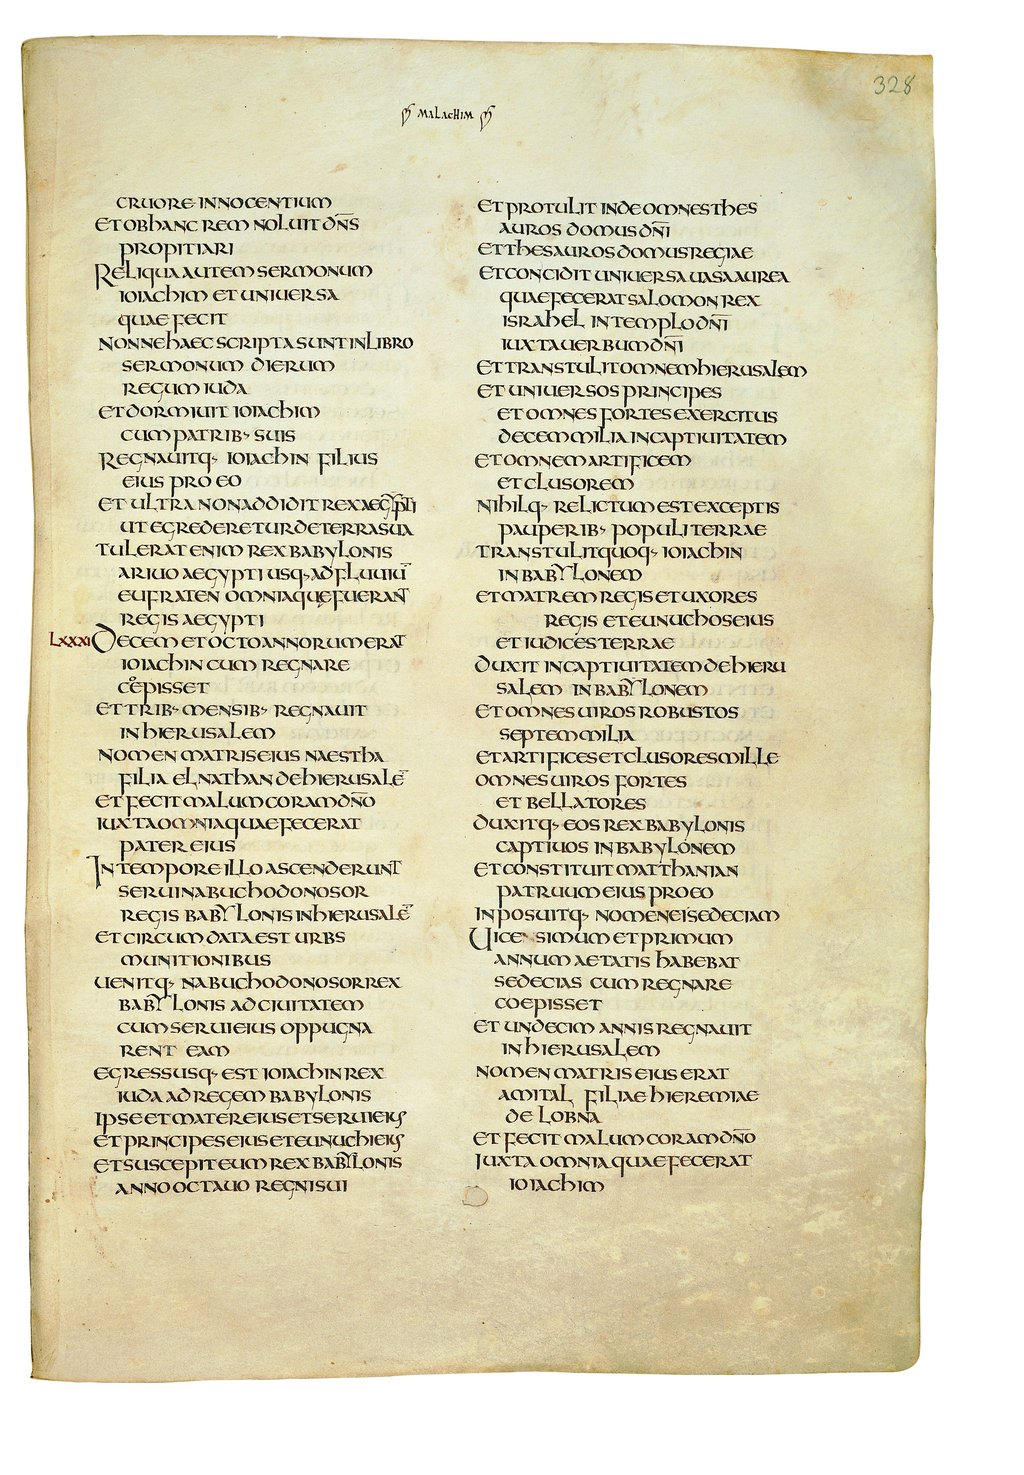 328
MALACHIM
CRUORE INNOCENTIUM
ET OB HANC REM NOLUIT DN̄S
PROPITIARI
RELIQUA AUTEM SERMONUM
IOIACHIM ET UNIUERSA
QUAE FECIT
NONNE HAEC SCRIPTA SUNT IN LIBRO
SERMONUM DIERUM
REGUM IUDA
ET DORMIUIT IOIACHIM
CUM PATRIB· SUIS
REGNAUITQ· IOIACHIN FILIUS
EIUS PRO EO
ET ULTRA NON ADDIDIT REX AEGYPTI
UT EGREDERETUR DE TERRA SUA
TULERAT ENIM REX BABYLONIS
A RIUO AEGYPTI USQ· AD FLUUIŪ
EUFRATEN OMNIA QUE FUERANT
REGIS AEGYPTI
LXXXI DECEM ET OCTO ANNORUM ERAT
IOIACHIN CUM REGNARE
COEPISSET
ET TRIB· MENSIB· REGNAUIT
IN HIERUSALEM
NOMEN MATRIS EIUS NAESTHA
FILIA ELNATHAN DE HIERUSALĒ
ET FECIT MALUM CORAM DN̄O
IUXTA OMNIA QUAE FECERAT
PATER EIUS
IN TEMPORE ILLO ASCENDERUNT
SERUI NABUCHODONOSOR
REGIS BABYLONIS IN HIERUSALĒ
ET CIRCUMDATA EST URBS
MUNITIONIBUS
UENITQ· NABUCHODONOSOR REX
BABYLONIS AD CIUITATEM
CUM SERUI EIUS OPPUGNA
RENT EAM
EGRESSUSQ· EST IOIACHIN REX
IUDA AD REGEM BABYLONIS
IPSE ET MATER EIUS ET SERUI EIUS
ET PRINCIPES EIUS ET EUNUCHI EIUS
ET SUSCEPIT EUM REX BABYLONIS
ANNO OCTAUO REGNI SUI
ET PROTULIT INDE OMNES THES
AUROS DOMUS DN̄I
ET THESAUROS DOMUS REGIAE
ET CONCIDIT UNIUERSA UASA AUREA
QUAE FECERAT SALOMON REX
ISRAHEL IN TEMPLO DN̄I
IUXTA UERBUM DN̄I
ET TRANSTULIT OMNEM HIERUSALEM
ET UNIUERSOS PRINCIPES
ET OMNES FORTES EXERCITUS
DECEM MILIA IN CAPTIUITATEM
ET OMNEM ARTIFICEM
ET CLUSOREM
NIHILQ· RELICTUM EST EXCEPTIS
PAUPERIB· POPULI TERRAE
TRANSTULIT QUOQ· IOIACHIN
IN BABYLONEM
ET MATREM REGIS ET UXORES
REGIS ET EUNUCHOS EIUS
ET IUDICES TERRAE
DUXIT IN CAPTIUITATEM DE HIERU
SALEM IN BABYLONEM
ET OMNES UIROS ROBUSTOS
SEPTEM MILIA
ET ARTIFICES ET CLUSORES MILLE
OMNES UIROS FORTES
ET BELLATORES
DUXITQ· EOS REX BABYLONIS
CAPTIUOS IN BABYLONEM
ET CONSTITUIT MATTHANIAN
PATRUUM EIUS PRO EO
INPOSUITQ· NOMEN EI SEDECIAM
UICESIMUM ET PRIMUM
ANNUM AETATIS HABEBAT
SEDECIAS CUM REGNARE
COEPISSET
ET UNDECIM ANNIS REGNAUIT
IN HIERUSALEM
NOMEN MATRIS EIUS ERAT
AMITAL FILIAE HIEREMIAE
DE LOBNA
ET FECIT MALUM CORAM DN̄O
IUXTA OMNIA QUAE FECERAT
IOIACHIM